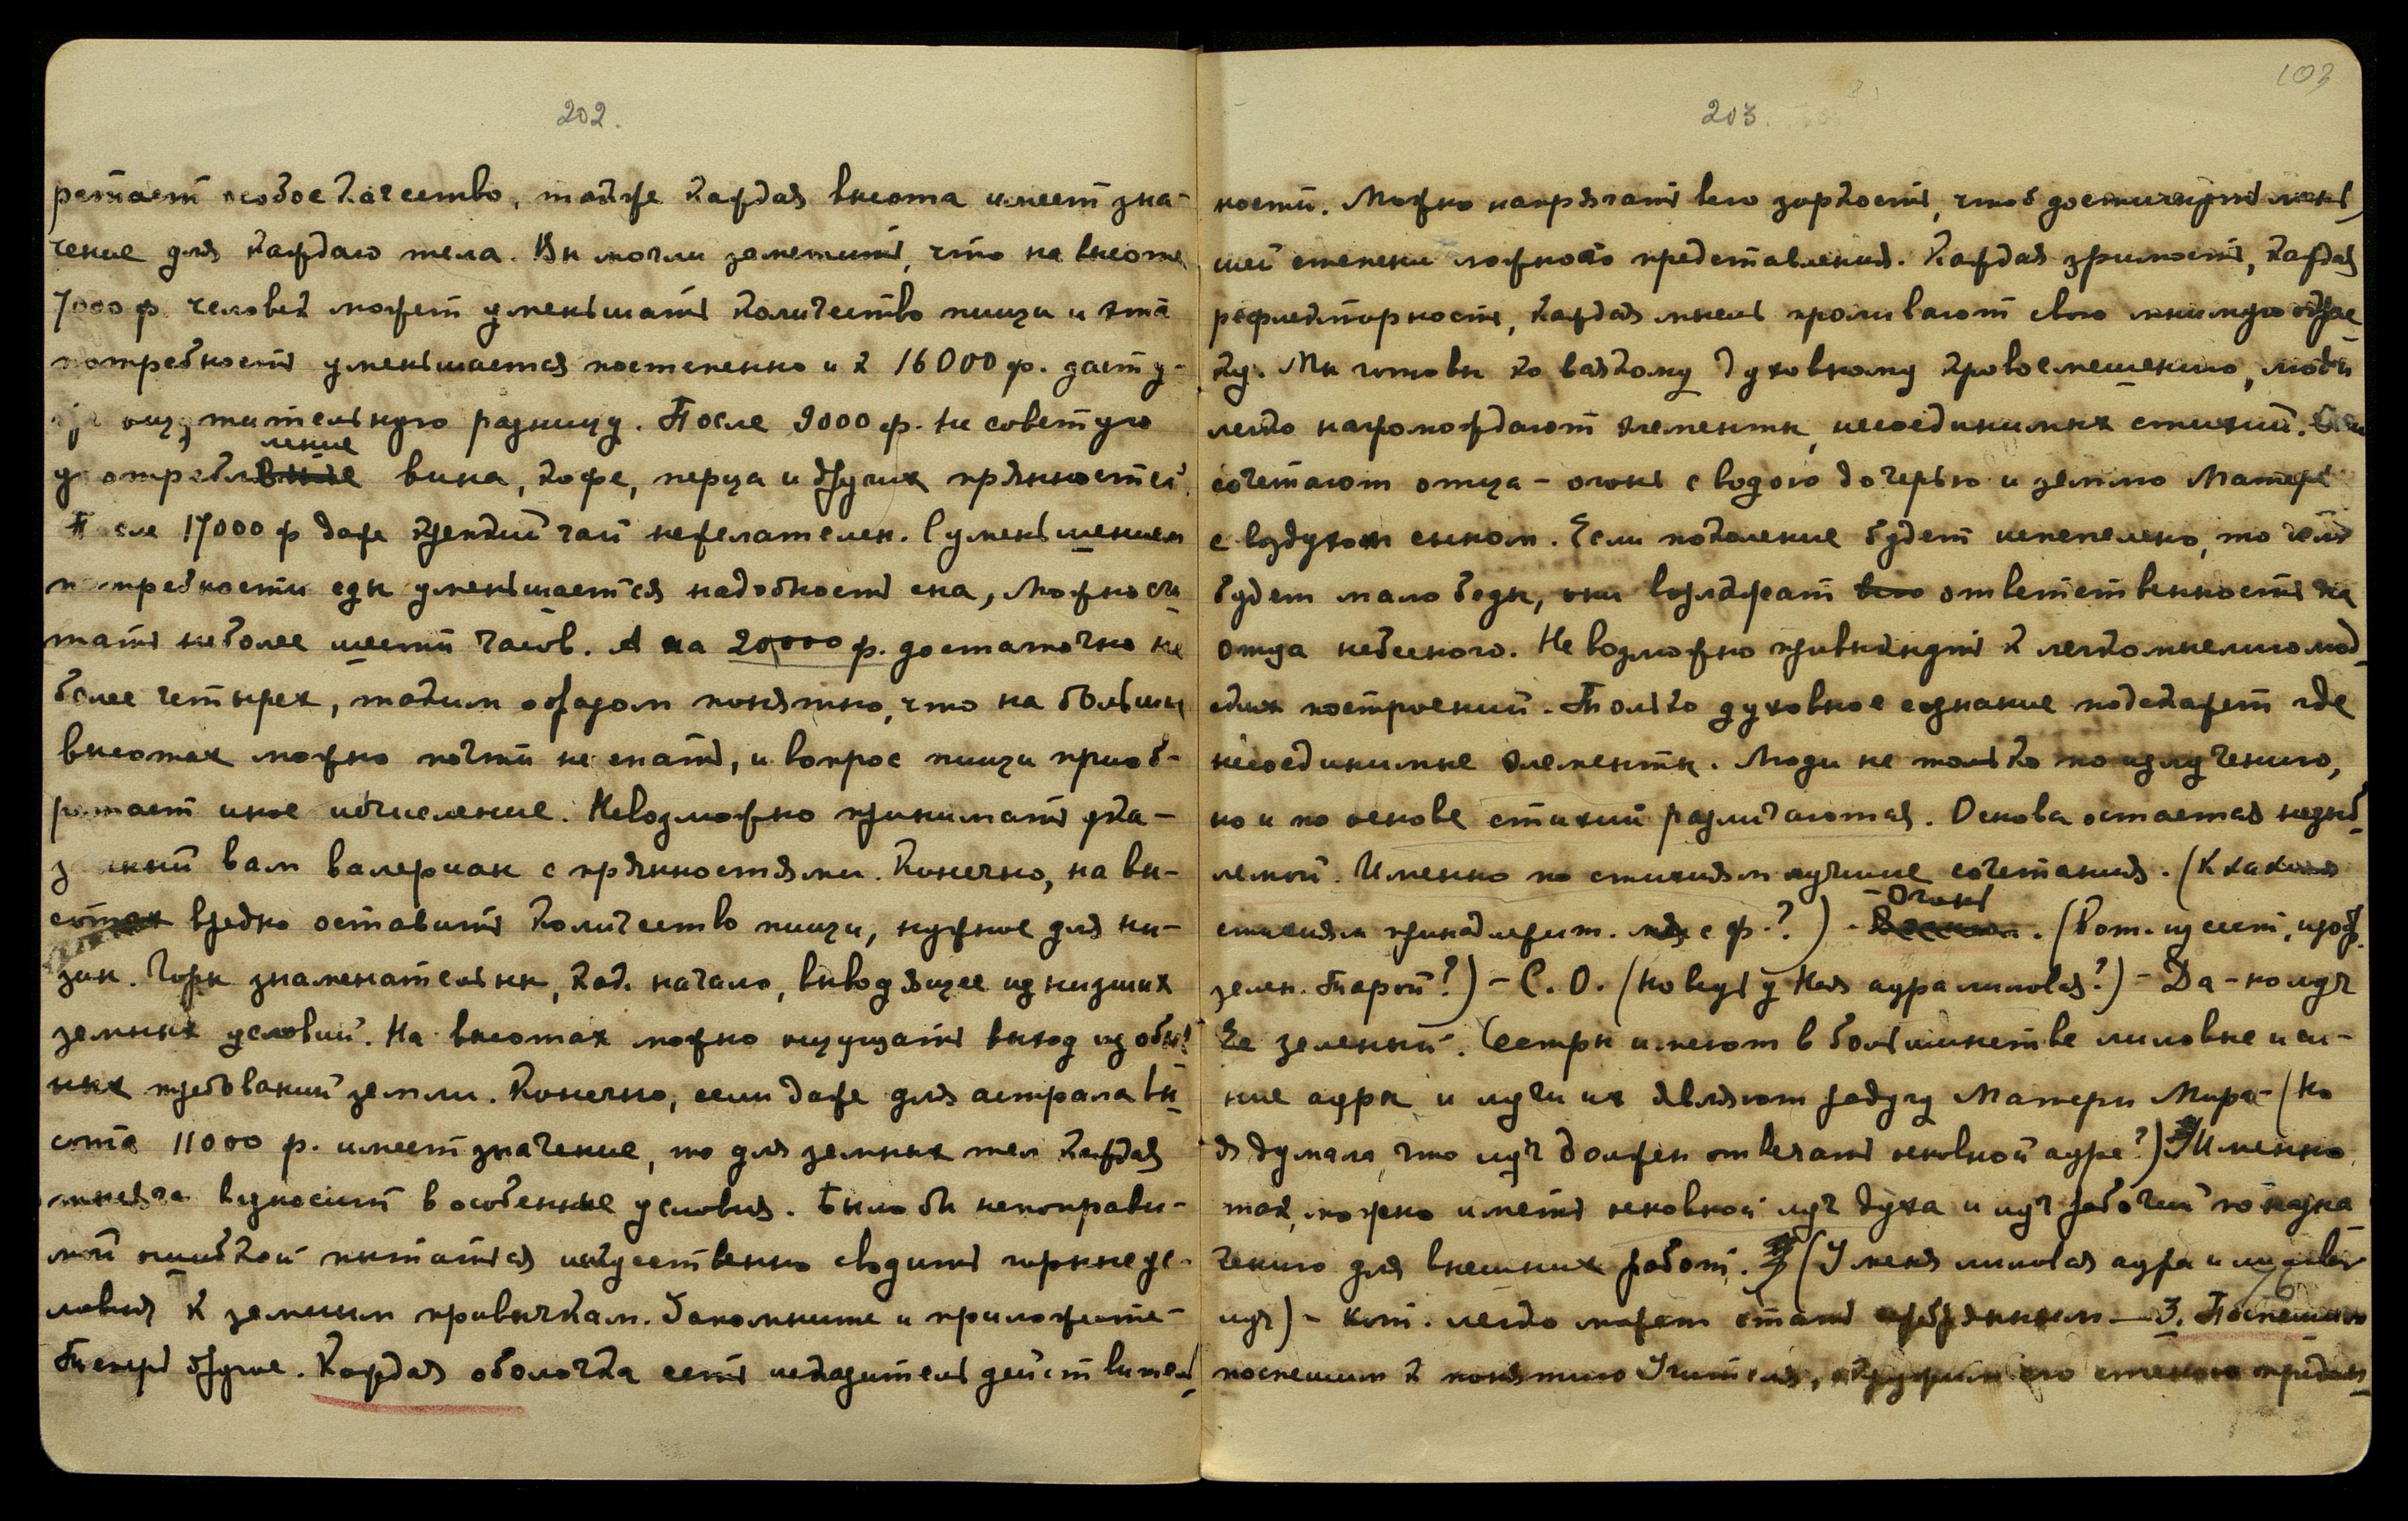 202.
ретает особое качество, также каждая высота имеет зна-
чение для каждаго тела. Вы могли заметить, что на высоте
7000 ф. человек может уменьшать количество пищи и эта
потребность уменьшается постепенно и к 16000 ф. дает у-
же ощутительную разницу. После 9000 ф. не советую
употребление вина, кофе, перца и других пряностей.
После 17000 ф даже крепкий чай нежелателен. С уменьшением
потребности еды уменьшается надобность сна, можно сп-
тать не более шести часов. А на 20000 ф. достаточно не
более четырех, таким образом понятно, что на больших
высотах можно почти не спать, и вопрос пищи приоб-
ретает иное исчисление. Невозможно принимать ука-
занный вам валериан с пряностями. Конечно, на вы-
сотах вредно оставить количество пищи, нужное для ни-
зин. Горы знаменательны, как начало, выводящее из низших
земных условий. На высотах можно ощущать выход из обыч
ных требований земли. Конечно, если даже для астрала вы-
сота 11000 ф. имеет значение, то для земных тел каждая
тысяча возносит в особенные условия. Было бы непоправи-
мой ошибкой пытаться искусственно сводить горные ус-
ловия к земным привычкам. Запомните и приложите-
Теперь другое. Каждая оболочка есть исказитель действитель
103
203.
ности. Можно напрягать всю зоркость, чтоб достичь
шей степени ложного представления. Каждая зримость, каждая
рефлекторность, каждая мысль проливают свою мнимую окрас
ку. Мы готовы ко всякому духовному кровосмешению, люди
легко нагромождают элементы несоединимых стихий.
сочетают отца - огонь с водою дочерью и землю Матерь
с воздухом сыном. Если поколение будет испепелено, то
будет мало беды, они возложат ответственность на
отца небесного. Невозможно привыкнуть к легкомыслию люд
ских построений. Только духовное сознание подскажет где
несоединимые элементы. Люди не только по излучению,
но и по основе стихий различаются. Основа остается незыб
лемой. Именно по стихиям лучшие сочетания. (К каким
стихиям принадлежит. с ф.?) - Огонь. (Вот. из сест, изоб.
зелен. Тарой?) - С. О. (Но ведь у Нея аура лиловая?) - Да - но луч
Ее зеленый. Сестры имеют в большинстве лиловые и си-
ние ауры и лучи их являют радугу Матери Мира - (Но
я думала, что луч должен отвечать основной ауре?) Именно
так, можно иметь основной луч духа и луч рабочий по назна
чению для внешних работ. (У меня лиловая аура и
луч) - кот. легко может стать серебряным — З. Поспешим
поспешим к понятию Учителя, окружим его стеною предан